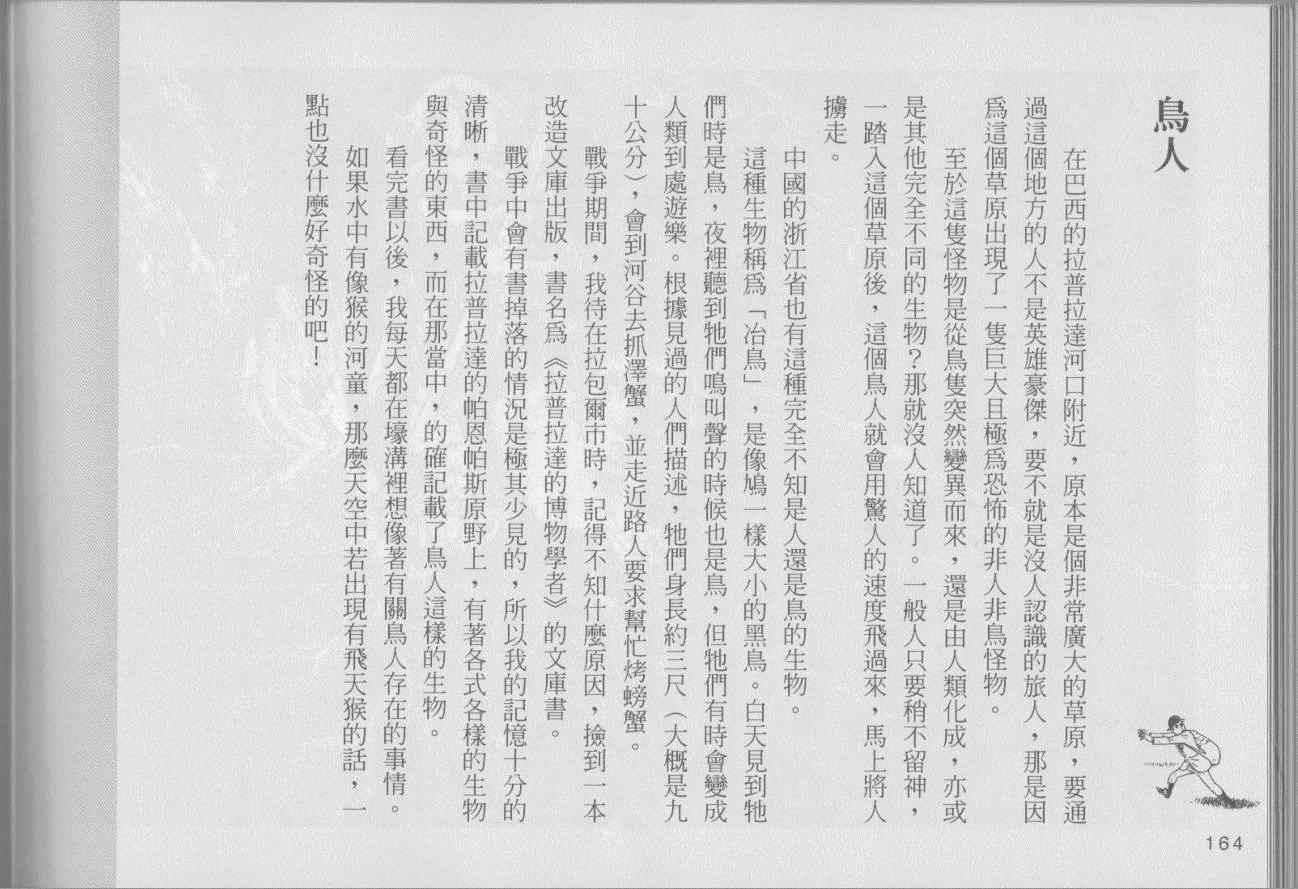 鳥人
在巴西的拉普拉達河口附近，原本是個非常廣大的草原，要通
過這個地方的人不是英雄豪傑，要不就是沒人認識的旅人，那是因
為這個草原出現了一隻巨大且極為恐怖的非人非鳥怪物。
至於這隻怪物是從鳥隻突然變異而來，還是由人類化成，亦或
是其他完全不同的生物？那就沒人知道了。一般人只要稍不留神，
一踏入這個草原後，這個鳥人就會用驚人的速度飛過來，馬上將人
擄走。
中國的浙江省也有這種完全不知是人還是鳥的生物。
這種生物稱為「冶鳥」，是像鳩一樣大小的黑鳥。白天見到牠
們時是鳥，夜裡聽到牠們鳴叫聲的時候也是鳥，但牠們有時會變成
人類到處遊樂。根據見過的人們描述，牠們身長約三尺（大概是九
十公分），會到河谷去抓澤蟹，並走近路人要求幫忙烤螃蟹。
戰爭期間，我待在拉包爾市時，記得不知什麼原因，撿到一本
改造文庫出版，書名為《拉普拉達的博物學者》的文庫書。
戰爭中會有書掉落的情況是極其少見的，所以我的記憶十分的
清晰，書中記載拉普拉達的帕恩帕斯原野上，有著各式各樣的生物
與奇怪的東西，而在那當中，的確記載了鳥人這樣的生物。
看完書以後，我每天都在壕溝裡想像著有關鳥人存在的事情。
如果水中有像猴的河童，那麼天空中若出現有飛天猴的話，一
點也沒什麼好奇怪的吧！
164